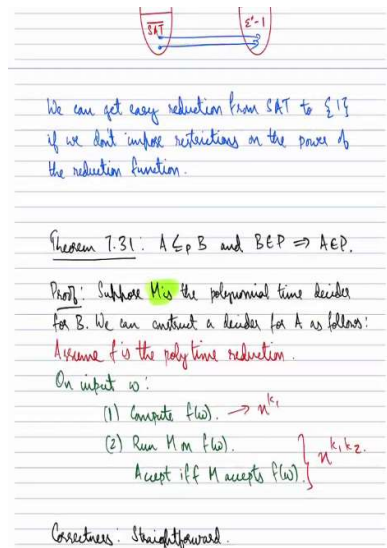 SAT
Σ*-1
We can get easy reduction from SAT to {1}
if we don't impose restrictions on the power of
the reduction function.
Theorem 7.31: A ≤p B and B∈P ⇒ A∈P.
Proof: Suppose M is the polynomial time decider
for B. We can construct a decider for A as follows:
Assume f is the poly time reduction.
On input ω:
(1) Compute f(ω). → n^k₁
(2) Run M on f(ω).
Accept iff M accepts f(ω). } n^k₁k₂.
Correctness: Straightforward.